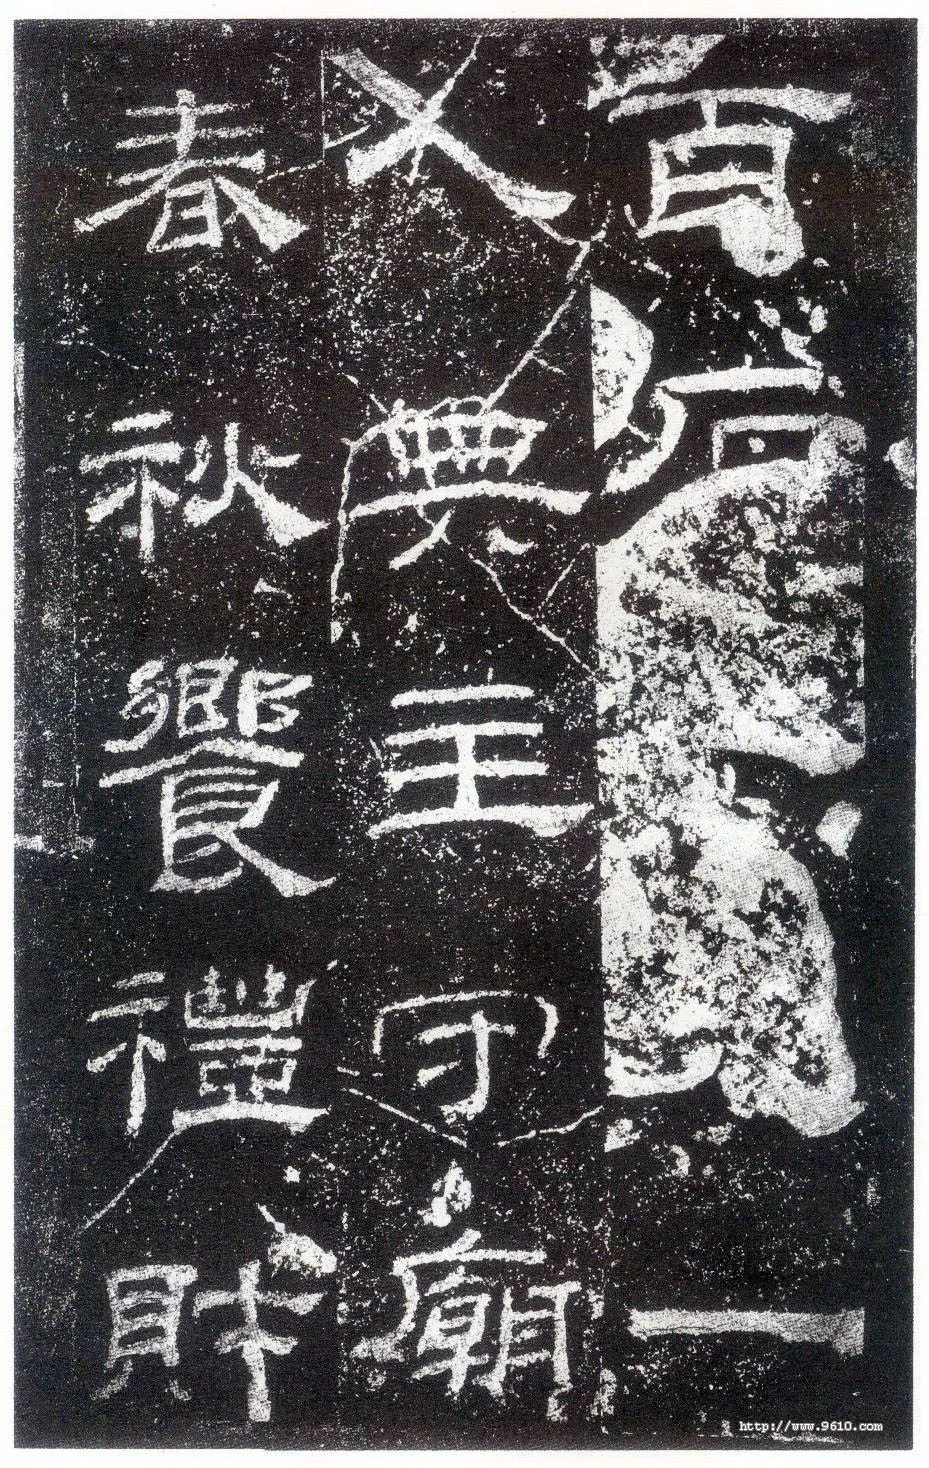 百石一
人典主守廟
春秋饗禮財
http://www.9610.com